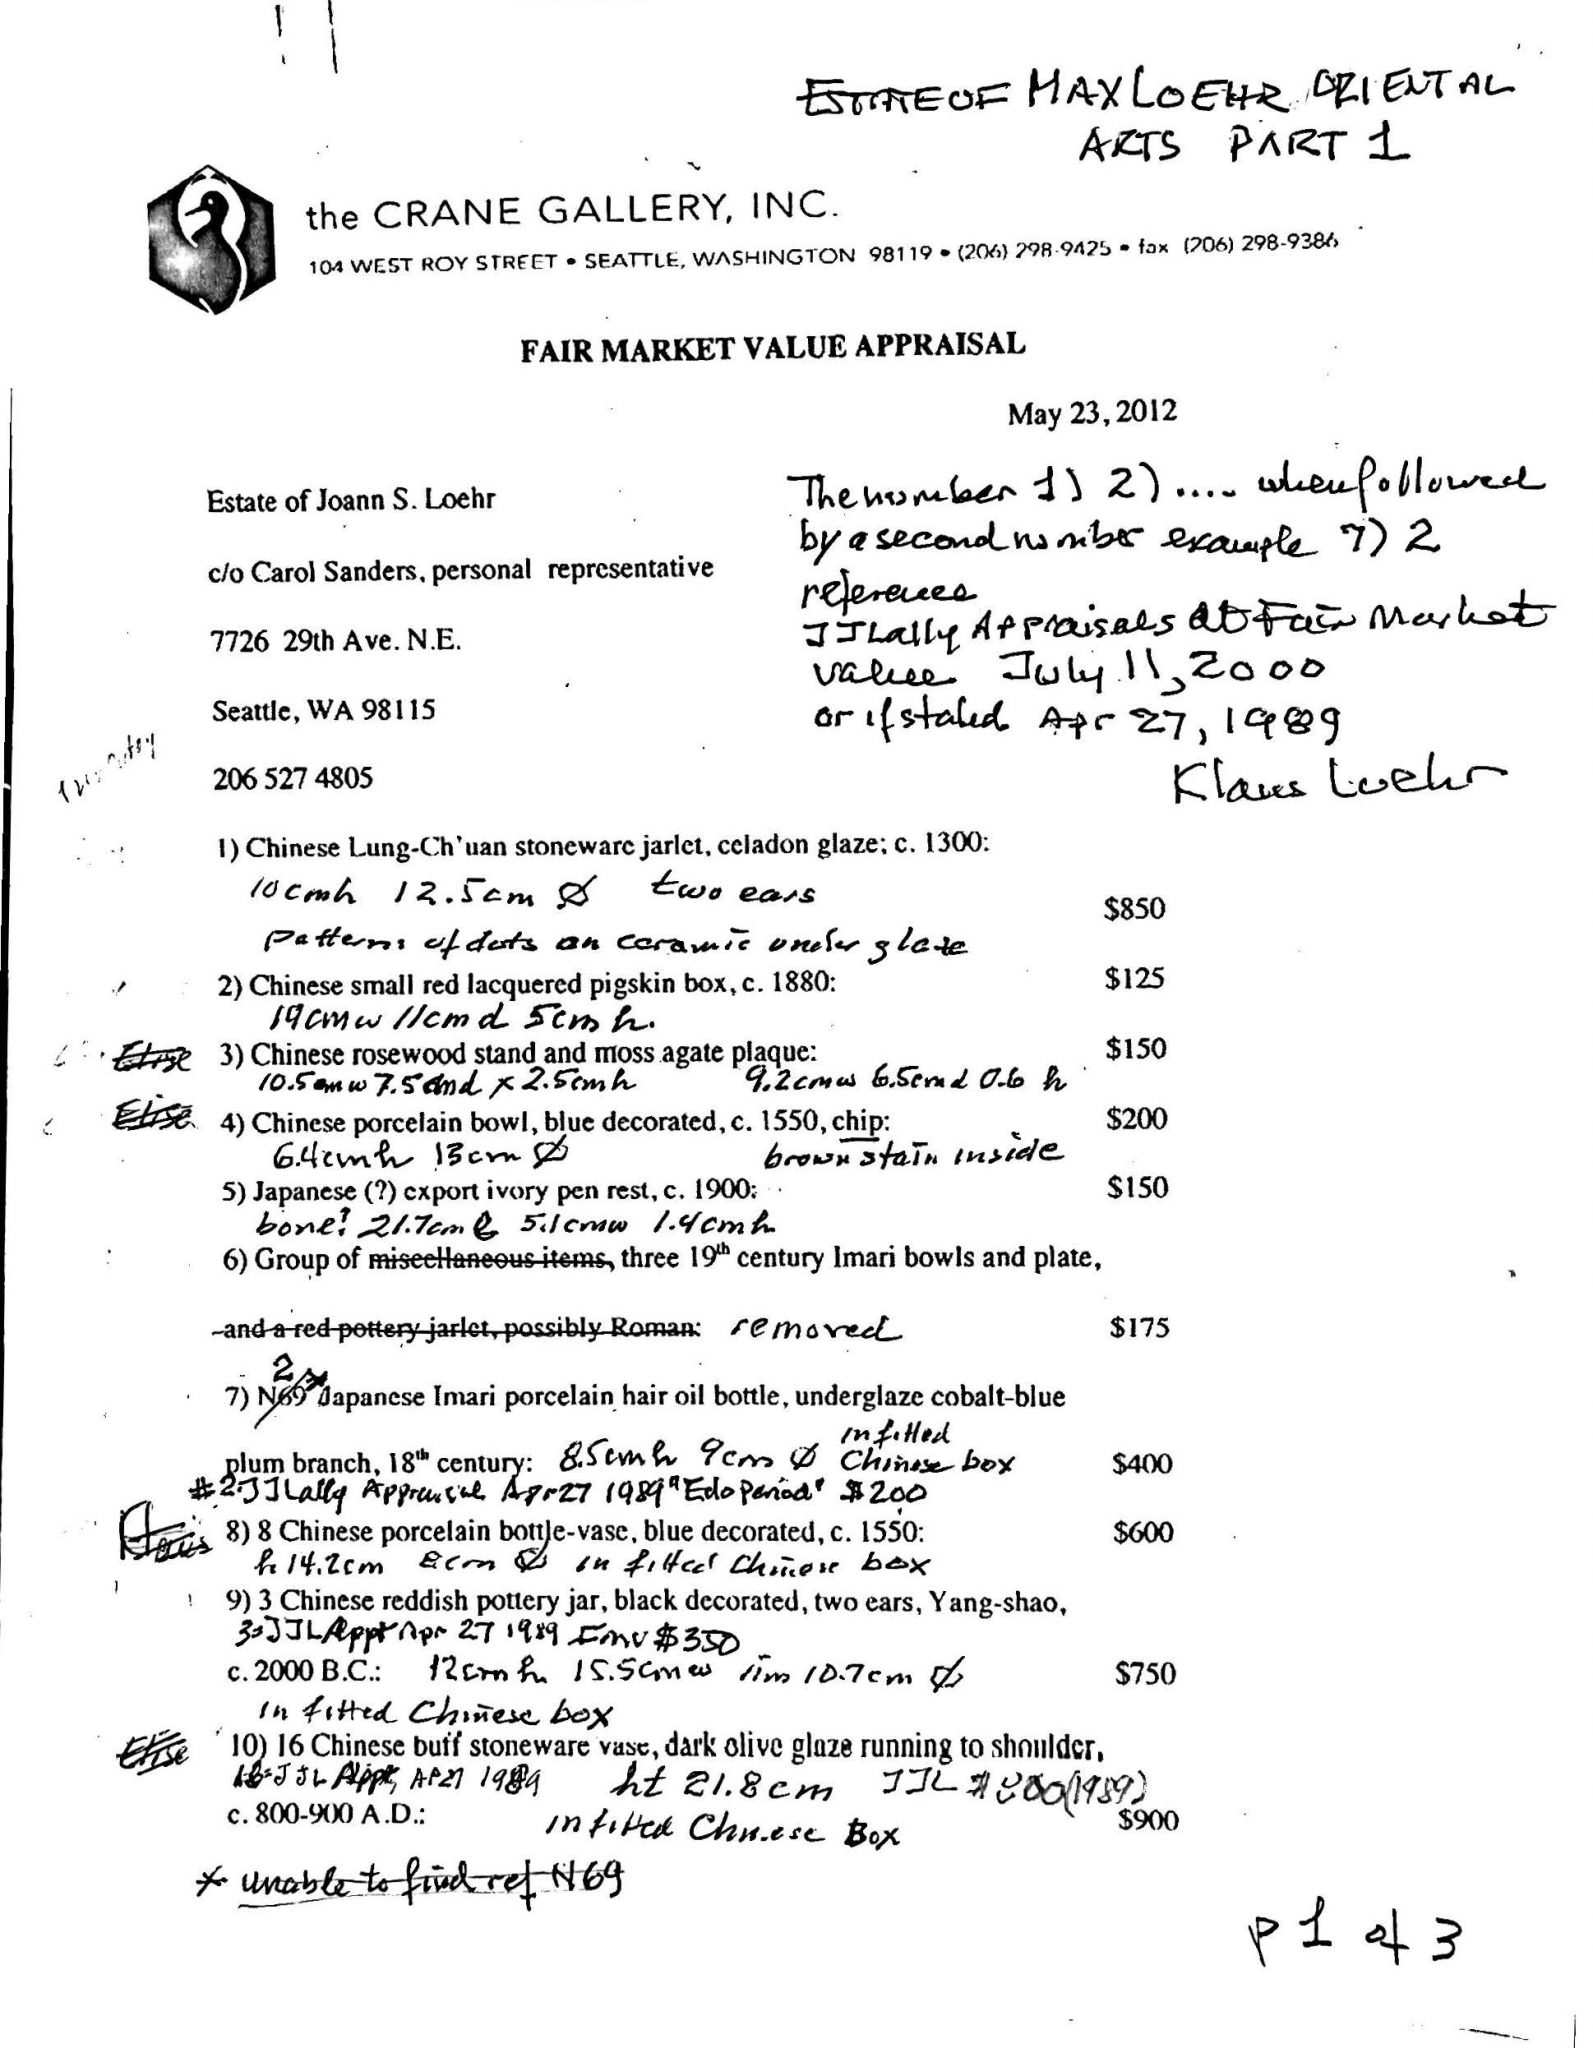 ESTATE OF MAX LOEHR ORIENTAL
ARTS PART 1
the CRANE GALLERY, INC.
104 WEST ROY STREET • SEATTLE, WASHINGTON 98119 • (206) 298-9425 • fax (206) 298-9386
FAIR MARKET VALUE APPRAISAL
May 23, 2012
Estate of Joann S. Loehr
c/o Carol Sanders, personal representative
7726 29th Ave. N.E.
Seattle, WA 98115
206 527 4805
The number 1) 2) .... when followed
by a second number example 7) 2
reference
JJLally Appraisals at Fair Market
value July 11, 2000
or if stated Apr 27, 1989
Klaus Loehr
1) Chinese Lung-Ch'uan stoneware jarlet, celadon glaze; c. 1300:
10cmh 12.5cm Ø two ears
$850
Patterns of dots on ceramic under glaze
2) Chinese small red lacquered pigskin box, c. 1880: $125
19cmw 11cmd 5cmh.
Elise 3) Chinese rosewood stand and moss agate plaque: $150
10.5cmw 7.5cmd x 2.5cmh 9.2cmw 6.5cmd 0.6 h
Elise 4) Chinese porcelain bowl, blue decorated, c. 1550, chip: $200
6.4cmh 13cm Ø brown stain inside
5) Japanese (?) export ivory pen rest, c. 1900: $150
bone? 21.7cm l 5.1cmw 1.4cmh
6) Group of miscellaneous items, three 19th century Imari bowls and plate,
and a red pottery jarlet, possibly Roman: removed $175
2
7) N69 * Japanese Imari porcelain hair oil bottle, underglaze cobalt-blue
in fitted
plum branch, 18th century: 8.5cmh 9cm Ø Chinese box $400
#2-JJLally Appraisal Apr27 1989 "Edo Period" $200
Klaus 8) 8 Chinese porcelain bottle-vase, blue decorated, c. 1550: $600
h 14.2cm 8cm Ø in fitted Chinese box
9) 3 Chinese reddish pottery jar, black decorated, two ears, Yang-shao,
3=JJL Appr Apr 27 1989 FMV $350
c. 2000 B.C.: 12cmh 15.5cmw rim 10.7cm Ø $750
in fitted Chinese box
Elise 10) 16 Chinese buff stoneware vase, dark olive glaze running to shoulder,
16=JJL Appr, AP27 1989 ht 21.8cm JJL (1989)
c. 800-900 A.D.: in fitted Chinese Box $900
* unable to find ref N69
p 1 of 3